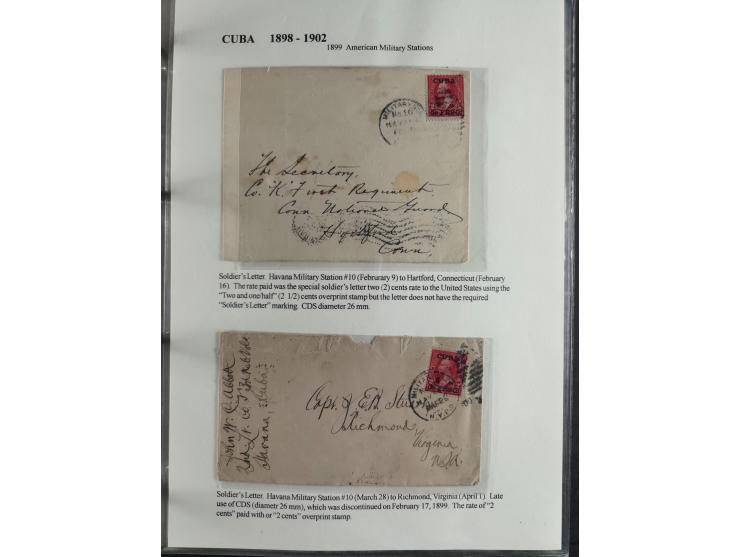 CUBA 1898 - 1902
1899 American Military Stations
CUBA
MILITARY
No. 10
The Secretary,
Co. "K" First Regiment
Conn National Guard
Hartford
Conn.
Soldier's Letter. Havana Military Station #10 (Februrary 9) to Hartford, Connecticut (February
16). The rate paid was the special soldier's letter two (2) cents rate to the United States using the
"Two and one/half" (2 1/2) cents overprint stamp but the letter does not have the required
"Soldier's Letter" marking. CDS diameter 26 mm.
CUBA
MILITARY
John W. C. Abbott
2nd Lt. Co
Havana, Cuba
Capt. J. E.B. Stuart
Richmond,
Virginia
Soldier's Letter. Havana Military Station #10 (March 28) to Richmond, Virginia (April 1). Late
use of CDS (diametr 26 mm), which was discontinued on February 17, 1899. The rate of "2
cents" paid with or "2 cents" overprint stamp.